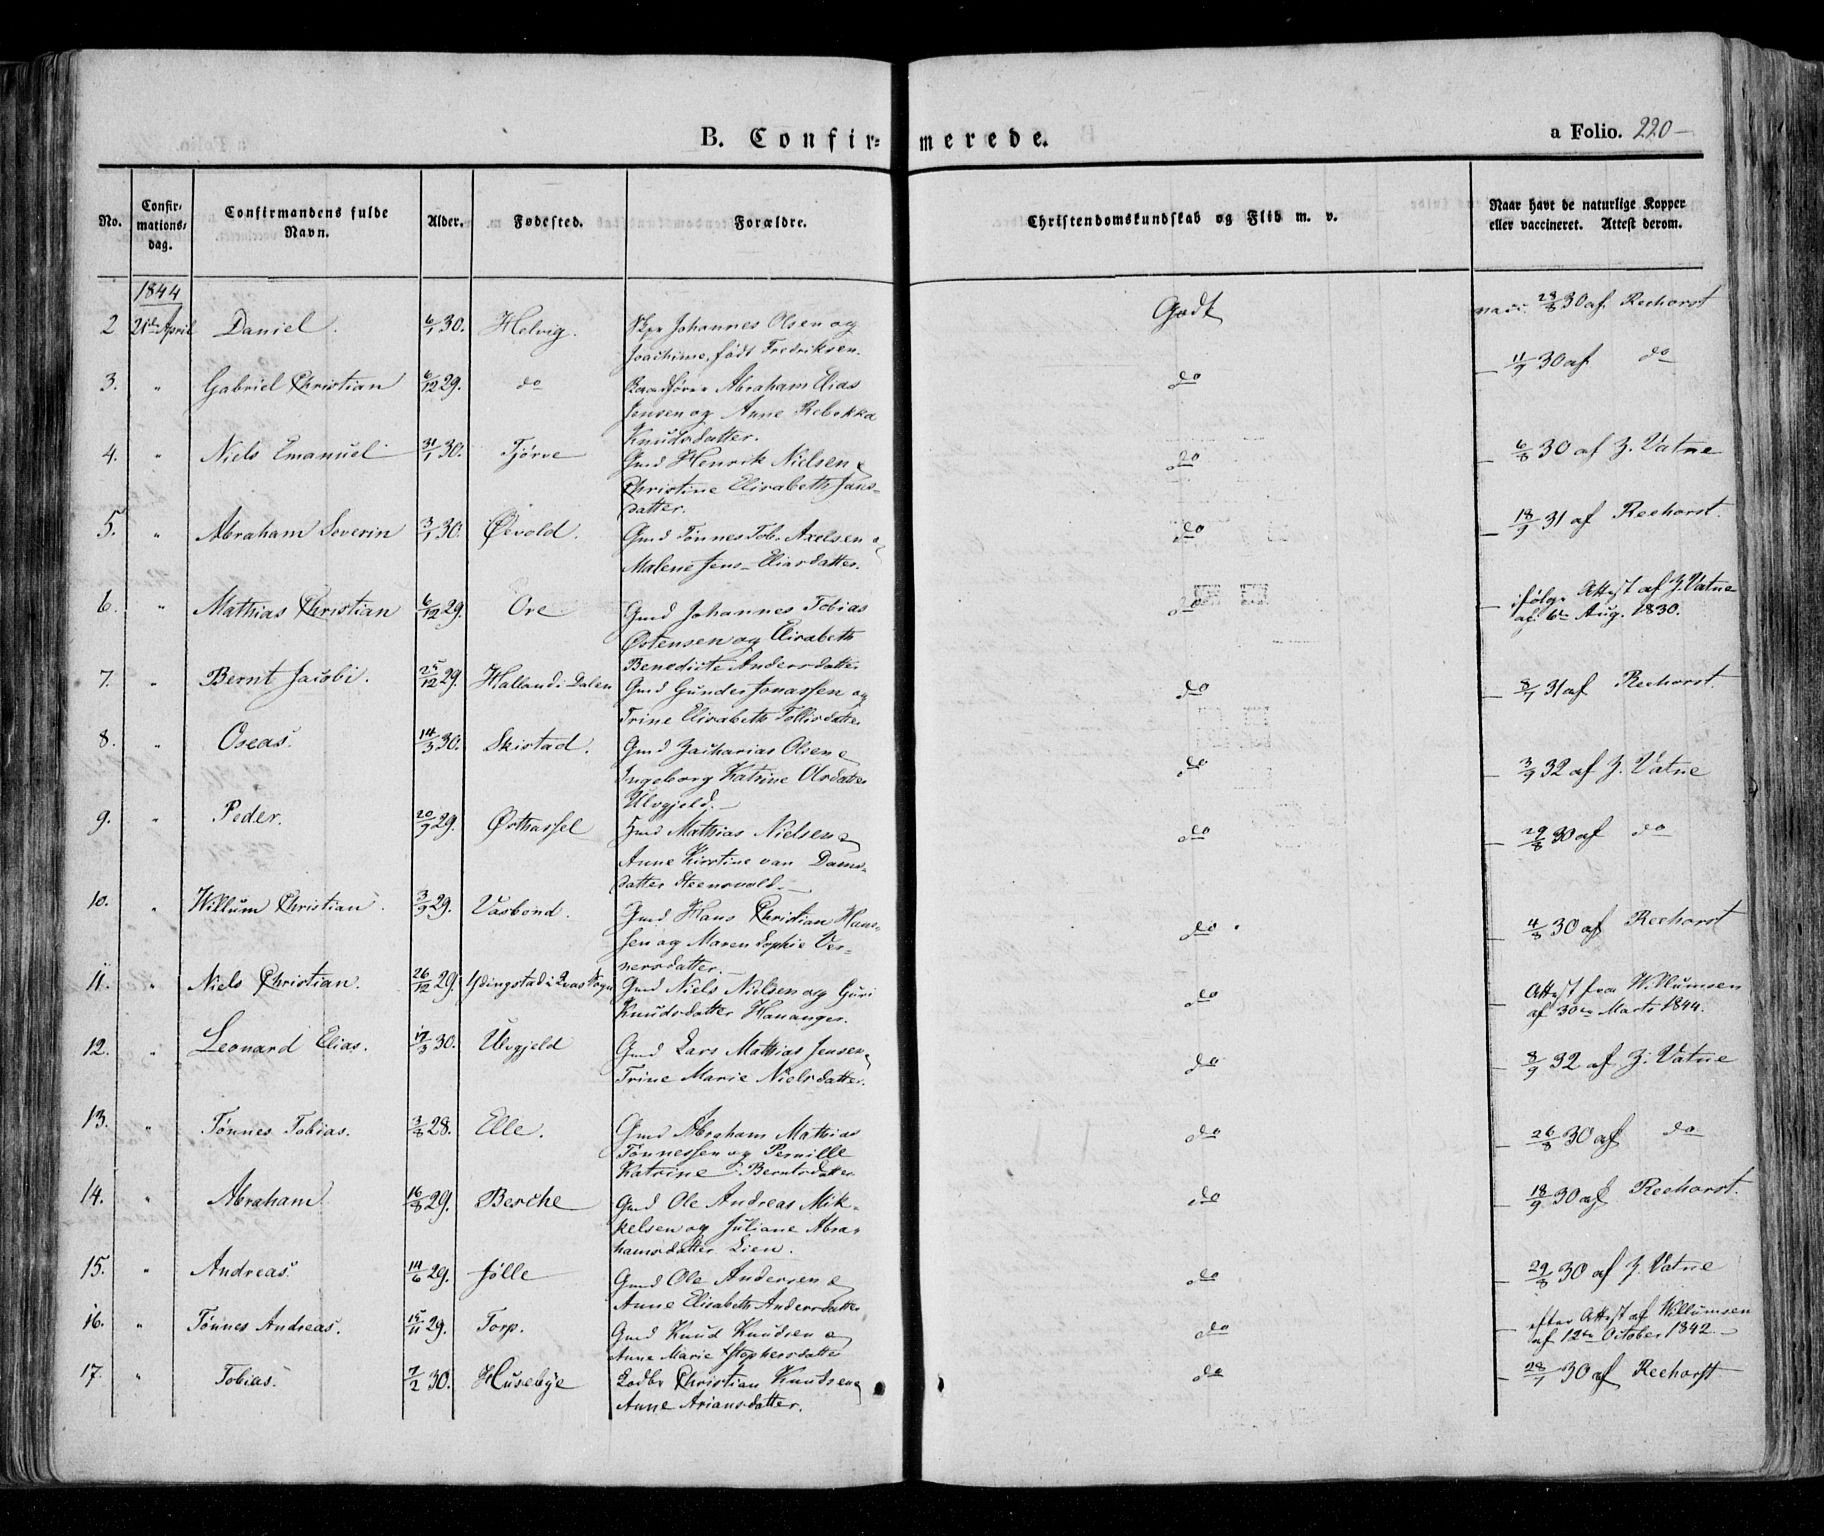 B. Confir- merede.
a Folio. 220-
No.
Confir-
mations-
dag.
Confirmandens fulde
Navn.
Alder.
Fødested.
Forældre.
Christendomskundskab og Flid m. v.
Naar havt de naturlige Kopper
eller vaccineret. Attest derom.
1844
2 21de April Daniel. 6/1 30. Helvig. Skpr Johannes Olsen og Godt vacc. 28/8 30 af Reehorst
Joachime, født Fredriksen.
3. " Gabriel Christian 6/12 29. do Abraham Elias do — 11/9 30 af do
Jensen og Anne Rebekka
Knudsdatter.
4. " Niels Emanuel 31/1 30. Tjørve Gmd Henrik Nielsen & do — 6/8 30 af Z. Vatne
Christine Elisabeth Jans-
datter.
5. " Abraham Severin 3/1 30. Øevold. Gmd Tønnes Tob. Axelsen & do — 18/9 31 af Reehorst.
Malene Jens-Eliasdatter.
6. " Mathias Christian 6/12 29. Ore Gmd Johannes Tobias do — ifølge Attest af Z. Vatne
Østensen og Elisabeth af 6te Aug. 1830.
Benedicte Andersdatter
7. " Bernt Jacobi. 25/12 29. Halland i Dalen Gmd Gunder Jonassen og do — 8/7 31 af Reehorst.
Trine Elisabeth Tollisdatter
8. " Oseas. 14/3 30. Skistad. Gmd Zacharias Olsen & do — 3/9 32 af Z. Vatne
Ingeborg Katrine Olsdatter
Ulvgjeld.—
9. " Peder. 20/9 29. Østhassel Gmd Mathias Nielsen & do — 29/8 30 af do
Anne Kirstine van Dams-
datter Steensvold.—
10. " Willum Christian. 3/9 29. Vasbond. Gmd Hans Christian Han- do. — 4/8 30 af Reehorst
sen og Maren Sophie Ver-
nersdatter.—
11. " Niels Christian. 26/12 29. Ydingstad i Qvas Sogn Gmd Niels Nielsen og Guri do — Attest fra Willumsen
Knudsdatter Hananger. af 30te Marts 1844.
12. " Leonard Elias. 17/3 30. Ulvgjeld Gmd Lars Mathias Jensen & do — 8/9 32 af Z. Vatne
Trine Marie Nielsdatter.
13. " Tønnes Tobias. 3/8 28. Elle. Gmd Abraham Mathias do — 26/8 30 af do
Tønnessen og Pernille
Katrine Berntsdatter
14. " Abraham 16/8 29. Berche Gmd Ole Andreas Mik- do — 18/9 30 af Reehorst.
kelsen og Juliane Abra-
hamsdatter Lien.
15. " Andreas. 14/6 29. Jølle Gmd Ole Andersen & do — 29/8 30 af Z. Vatne
Anne Elisabeth Andersdatter
16. " Tønnes Andreas. 15/11 29. Torp. Gmd Knud Knudsen & do — efter Attest af Willumsen
Anne Marie Stophersdatter af 12te October 1842.—
17. " Tobias. 7/2 30. Husebye Lodbr Christian Knudsen & do — 28/7 30 af Reehorst
Anne Ariansdatter.